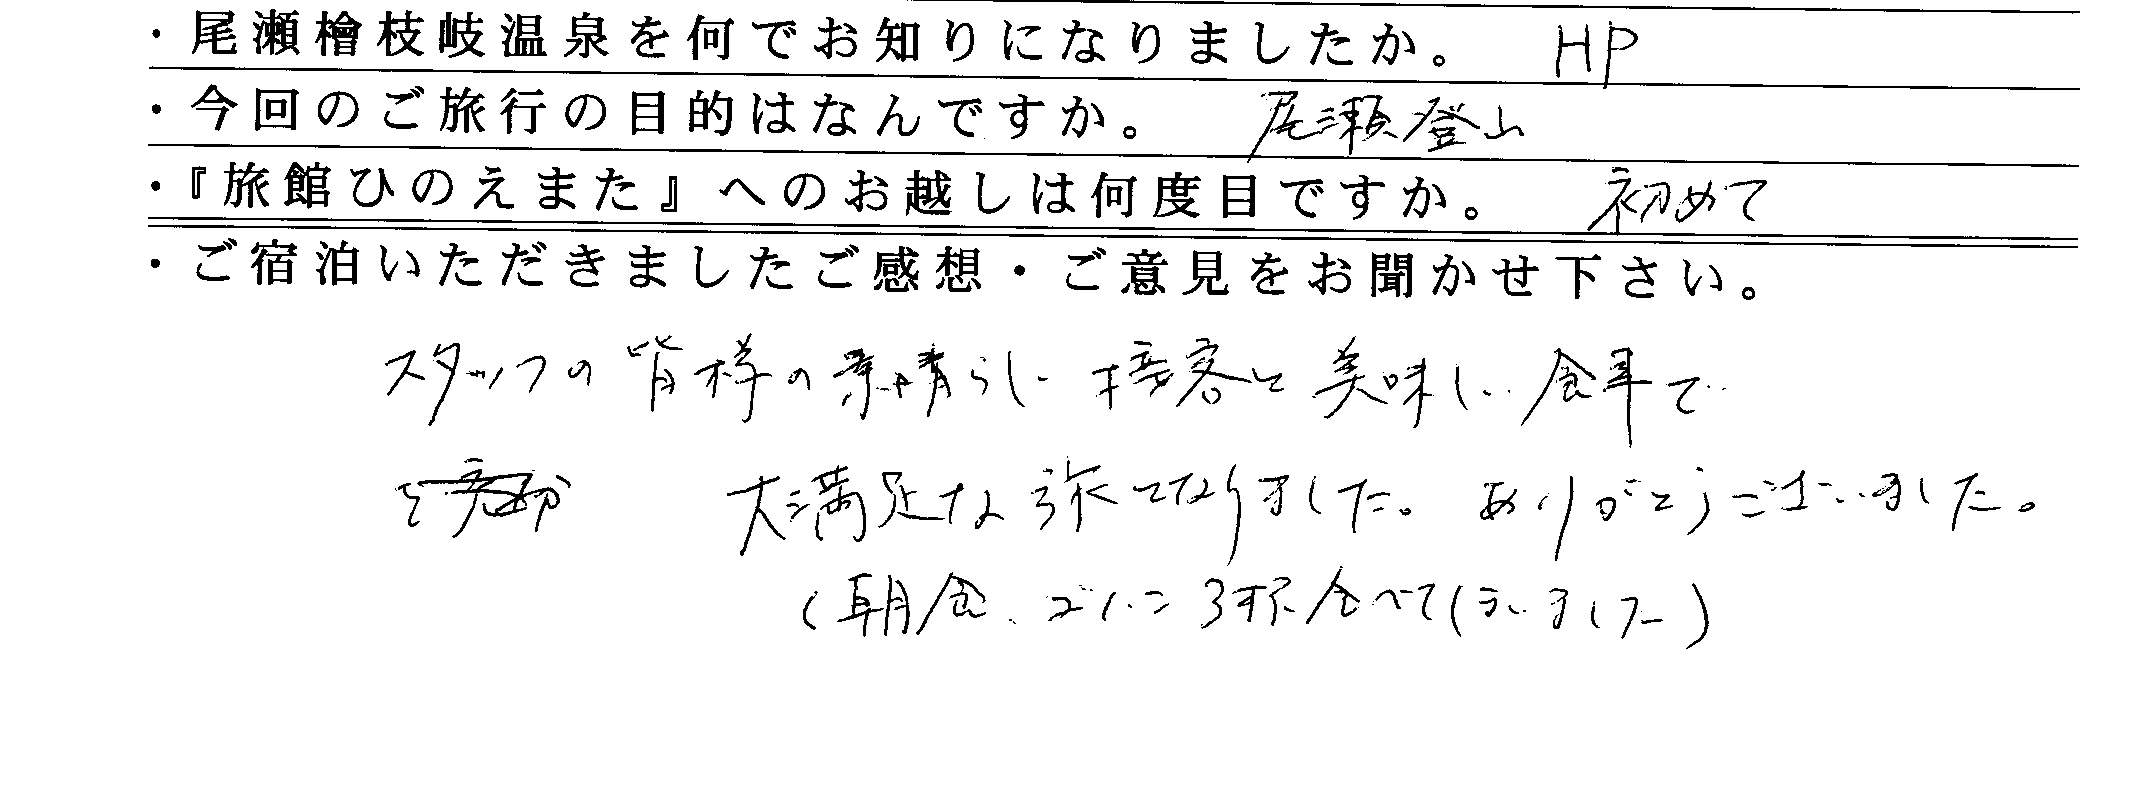 ・尾瀬檜枝岐温泉を何でお知りになりましたか。 HP
・今回のご旅行の目的はなんですか。 尾瀬登山
・『旅館ひのえまた』へのお越しは何度目ですか。 初めて
・ご宿泊いただきましたご感想・ご意見をお聞かせ下さい。
スタッフの皆様の素晴らしい接客と美味しい食事で
大満足な旅となりました。ありがとうございました。
(朝食、ごはん3杯食べてしまいました)